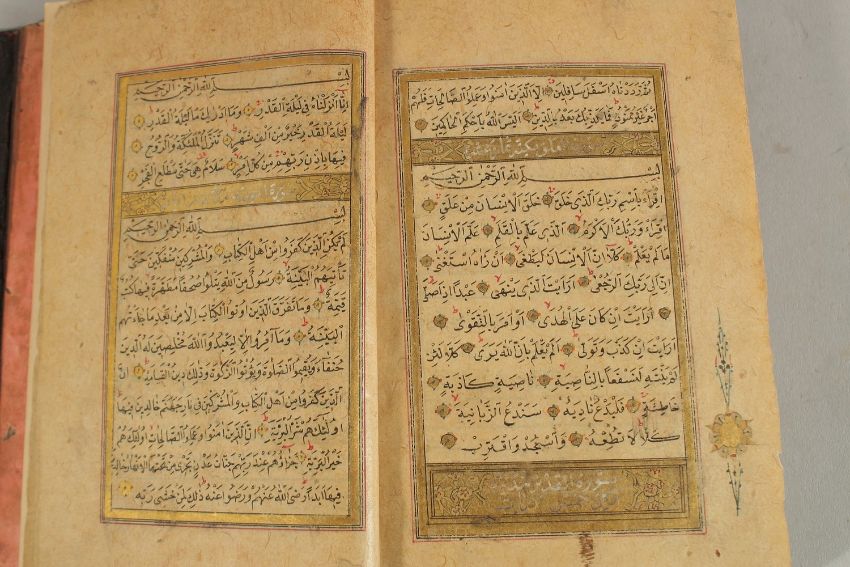 ثم رددناه اسفل سافلين الا الذين امنوا وعملوا الصالحات فلهم
اجر غير ممنون فما يكذبك بعد بالدين اليس الله باحكم الحاكمين
بسم الله الرحمن الرحيم
اقراء باسم ربك الذى خلق خلق الانسان من علق
اقراء وربك الاكرم الذى علم بالقلم علم الانسان
مالم يعلم كلا ان الانسان ليطغى ان راه استغنى
ان الى ربك الرجعى ارايت الذى ينهى عبدا اذا صلى
ارايت ان كان على الهدى او امر بالتقوى
ارايت ان كذب وتولى الم يعلم بان الله يرى كلا لئن
لم ينته لنسفعا بالناصية ناصية كاذبة
خاطئة فليدع ناديه سندع الزبانية
كلا لا تطعه واسجد واقترب
سورة القدر
بسم الله الرحمن الرحيم
انا انزلناه فى ليلة القدر وما ادراك ما ليلة القدر
ليلة القدر خير من الف شهر تنزل الملئكة والروح
فيها باذن ربهم من كل امر سلام هى حتى مطلع الفجر
بسم الله الرحمن الرحيم
لم يكن الذين كفروا من اهل الكتاب والمشركين منفكين حتى
تأتيهم البينة رسول من الله يتلوا صحفا مطهرة فيها كتب
قيمة وما تفرق الذين اوتوا الكتاب الا من بعد ما جاءتهم
البينة وما امروا الا ليعبدوا الله مخلصين له الدين
حنفاء ويقيموا الصلوة ويؤتوا الزكوة وذلك دين القيمة ان
الذين كفروا من اهل الكتاب والمشركين فى نار جهنم خالدين فيها
اولئك هم شر البرية ان الذين امنوا وعملوا الصالحات اولئك هم
خير البرية جزاؤهم عند ربهم جنات عدن تجرى من تحتها الانهار خالدين
فيها ابدا رضى الله عنهم ورضوا عنه ذلك لمن خشى ربه